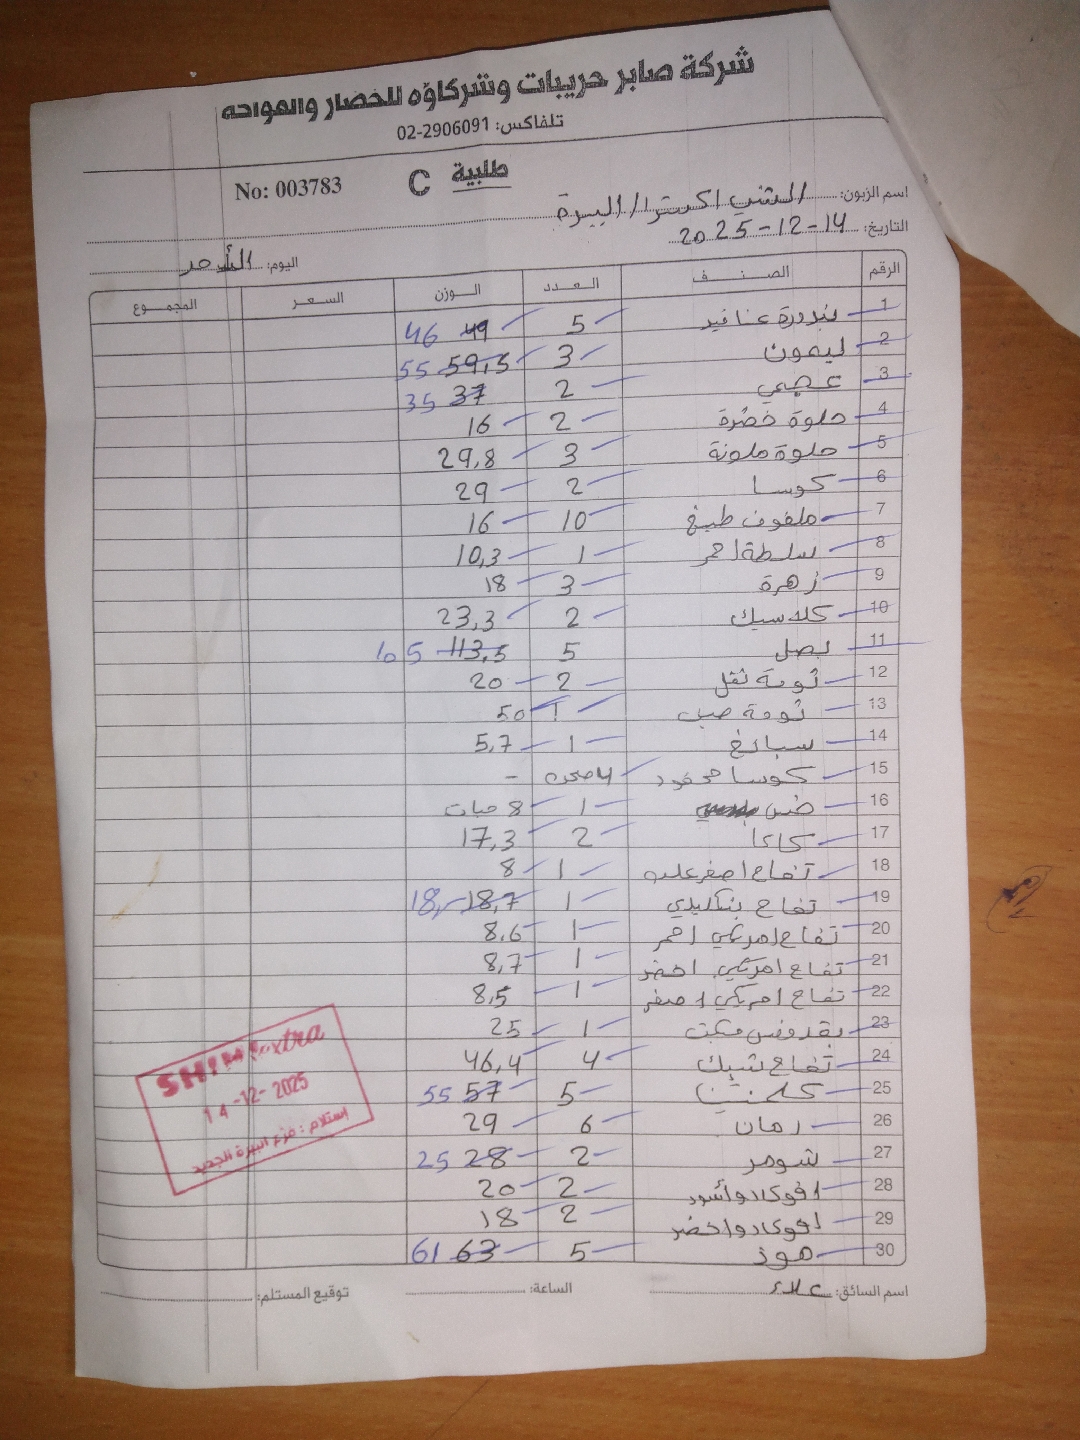 شركة صابر حريبات وشركاؤه للخضار والفواكه
تلفاكس: 02-2906091
طلبية C No: 003783
اسم الزبون: الشني اكسترا / البيرة
التاريخ: 14-12-2025
اليوم: الأحد
الرقم الصنف العدد الوزن السعر المجموع
1 بندورة عناقيد 5 49 46
2 ليمون 3 59,5 55
3 عجمي 2 37 35
4 حلوة خضرة 2 16
5 حلوة ملونة 3 29,8
6 كوسا 2 29
7 ملفوف طبيخ 10 16
8 سلطة احمر 1 10,3
9 زهرة 3 18
10 كلاسيك 2 23,3
11 بصل 5 113,5 105
12 ثومة نقل 2 20
13 ثومة حب 1 50
14 سبانخ 1 5,7
15 كوسا محفور 4 صحن -
16 خس 1 8 حبات
17 كاكا 2 17,3
18 تفاح اصفر 1 8
19 تفاح 1 18,7 18,-
20 تفاح امريكي احمر 1 8,6
21 تفاح امريكي اخضر 1 8,7
22 تفاح امريكي اصفر 1 8,5
23 بقدونس مكبت 1 25
24 تفاح شبك 4 46,4
25 كلمنتينا 5 57 55
26 رمان 6 29
27 شومر 2 28 25
28 افوكادو أسود 2 20
29 افوكادو اخضر 2 18
30 موز 5 63 61
اسم السائق: علاء الساعة: توقيع المستلم:
SHINI extra
14-12-2025
استلام: فرع البيرة الجديد